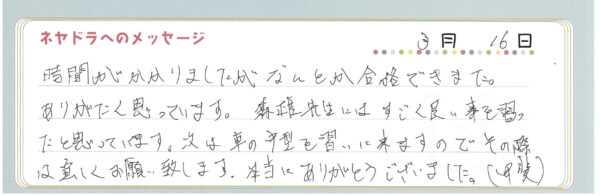 ネヤドラへのメッセージ
3月 16日
時間がかかりましたがなんとか合格できました。
ありがたく思っています。森雄先生にはすごく良い事を習っ
たと思っています。次は車の中型を習いに来ますのでその際
は宜しくお願い致します。本当にありがとうございました。